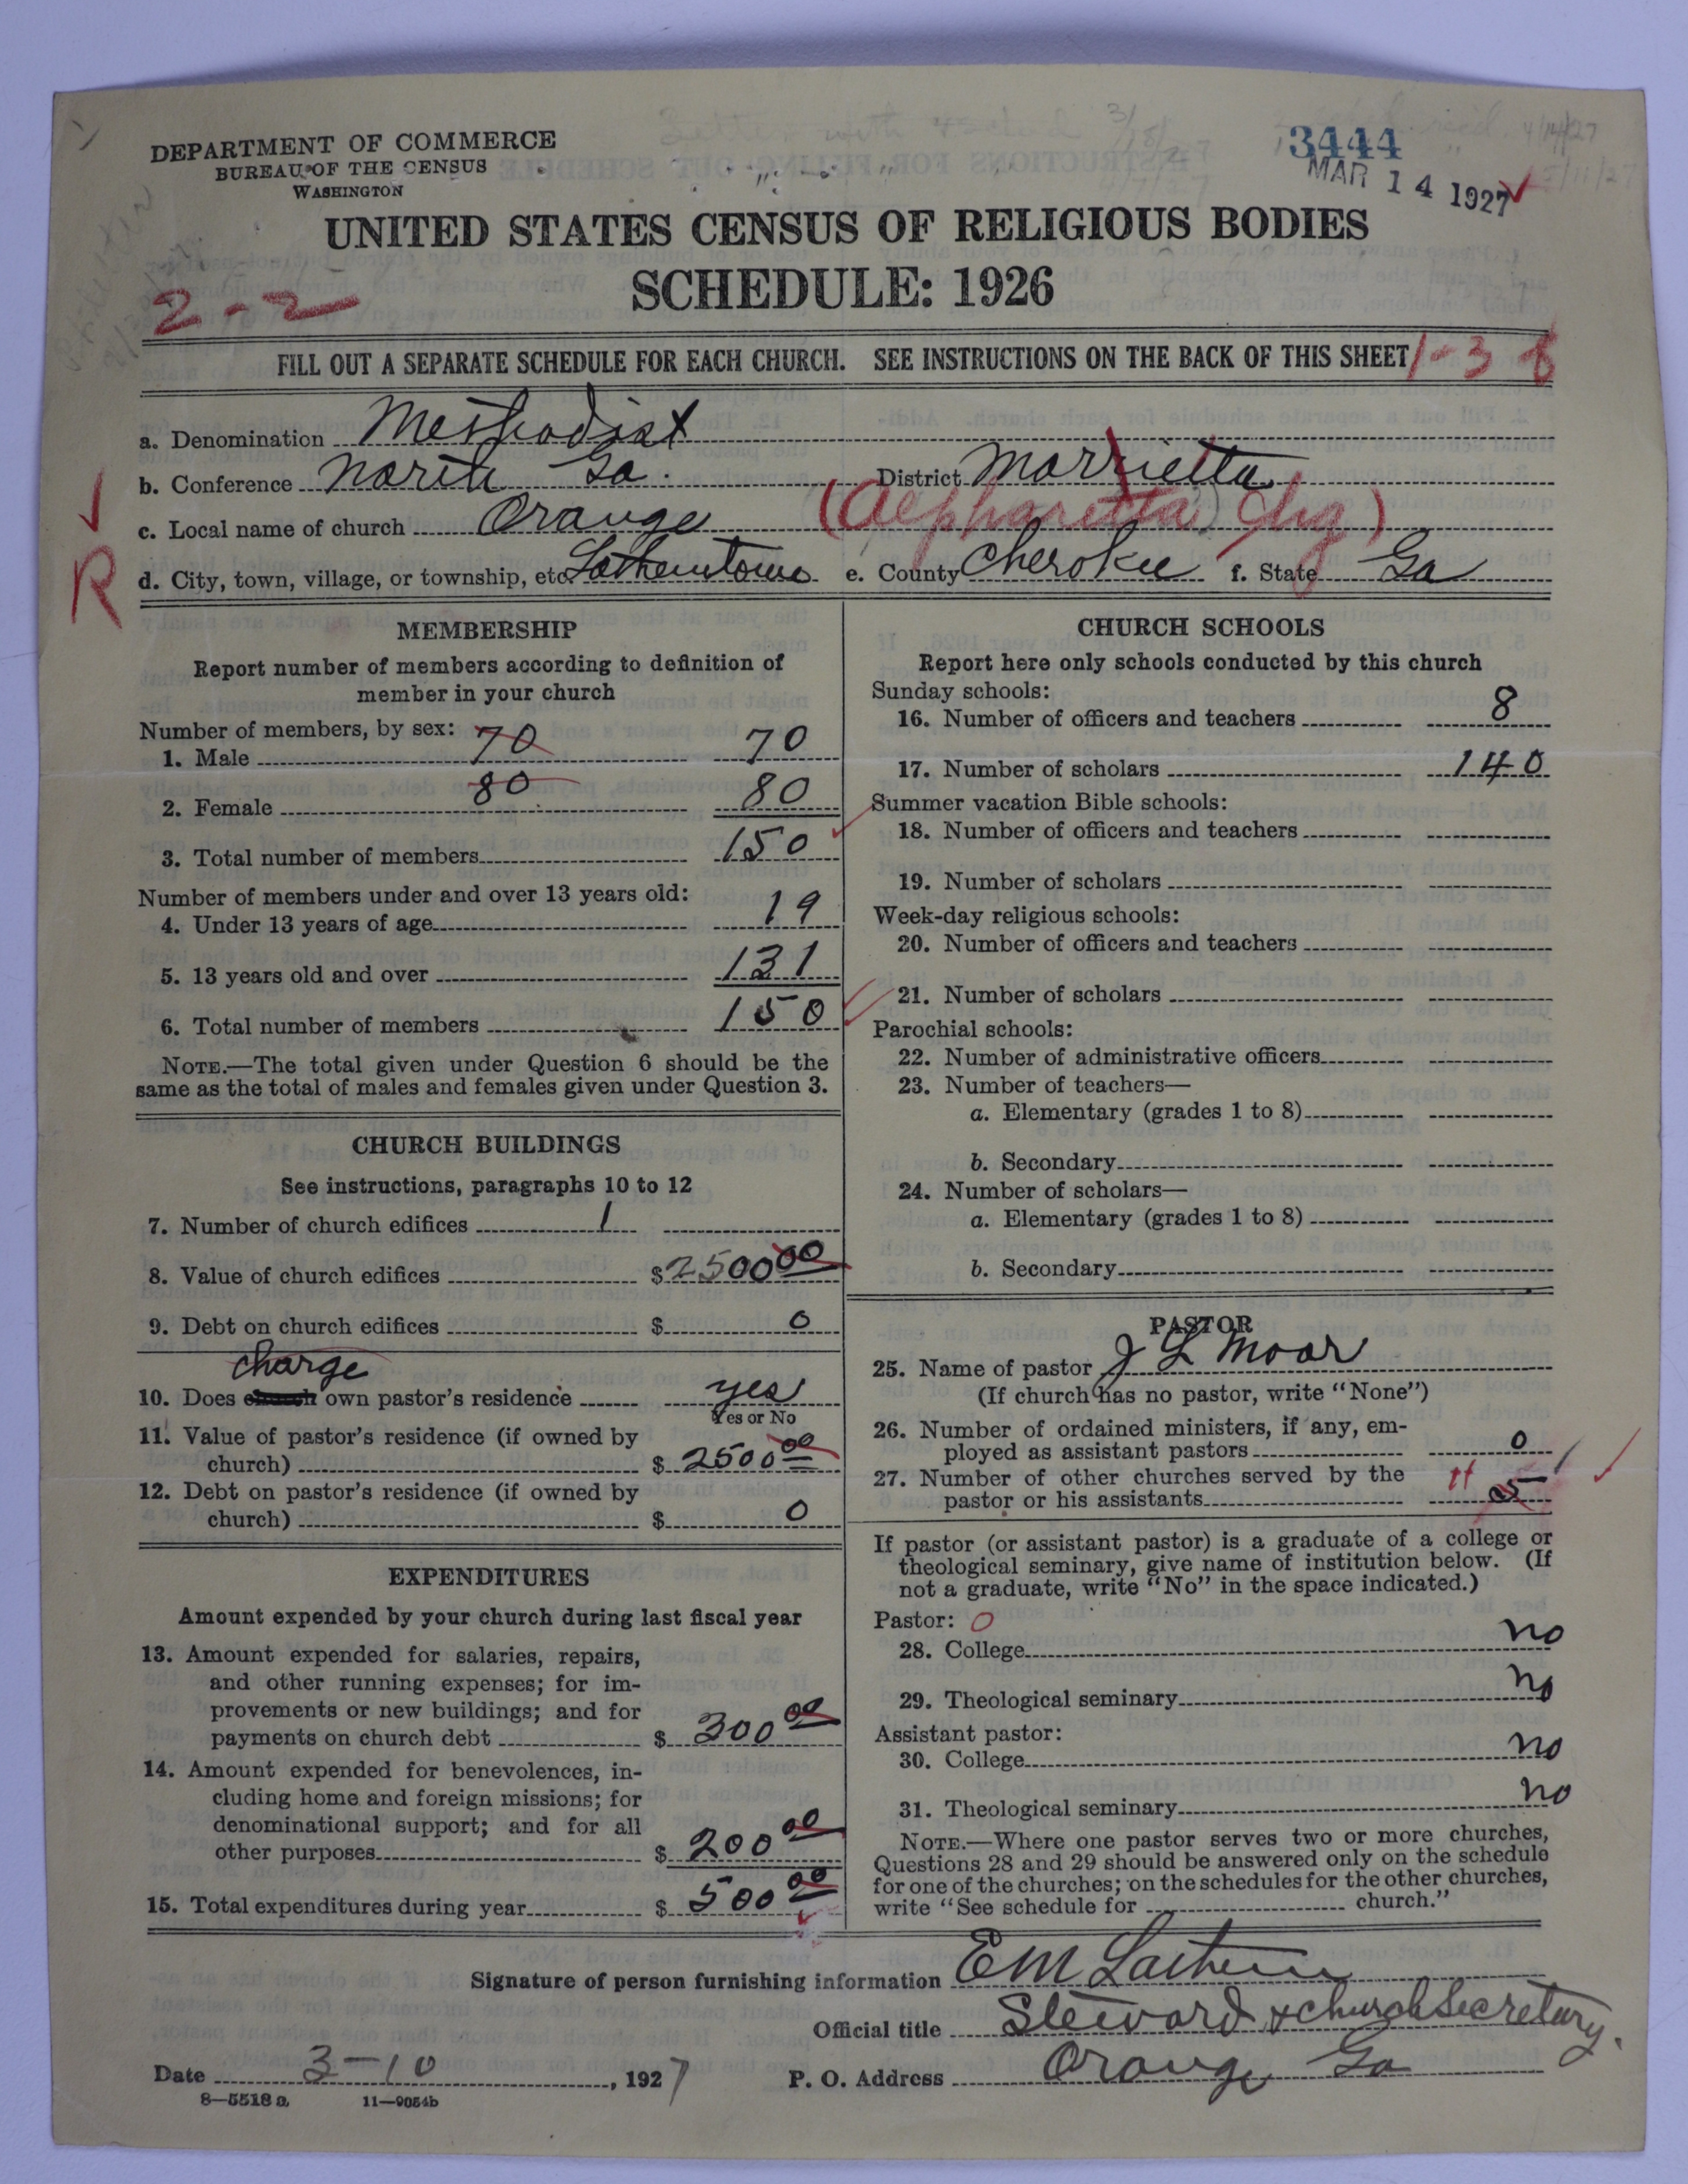 DEPARTMENT OF COMMERCE
BUREAU OF THE CENSUS
WASHINGTON
3444
MAR 14 1927
UNITED STATES CENSUS OF RELIGIOUS BODIES
SCHEDULE: 1926
2-2
FILL OUT A SEPARATE SCHEDULE FOR EACH CHURCH. SEE INSTRUCTIONS ON THE BACK OF THIS SHEET
1-3
a. Denomination Methodist
b. Conference North Ga. District Marrietta
c. Local name of church Orange (Alpharetta Chg)
R
d. City, town, village, or township, etc. Lathemtown e. County Cherokee f. State Ga
MEMBERSHIP
Report number of members according to definition of
member in your church
Number of members, by sex: 70
1. Male 70
80
2. Female 80
3. Total number of members 150
Number of members under and over 13 years old:
4. Under 13 years of age 19
5. 13 years old and over 131
6. Total number of members 150
NOTE.—The total given under Question 6 should be the
same as the total of males and females given under Question 3.
CHURCH BUILDINGS
See instructions, paragraphs 10 to 12
7. Number of church edifices 1
8. Value of church edifices $ 2500 00
9. Debt on church edifices $ 0
charge
10. Does church own pastor's residence yes
Yes or No
11. Value of pastor's residence (if owned by
church) $ 2500 00
12. Debt on pastor's residence (if owned by
church) $ 0
EXPENDITURES
Amount expended by your church during last fiscal year
13. Amount expended for salaries, repairs,
and other running expenses; for im-
provements or new buildings; and for
payments on church debt $ 300 00
14. Amount expended for benevolences, in-
cluding home and foreign missions; for
denominational support; and for all
other purposes $ 200 00
15. Total expenditures during year $ 500 00
CHURCH SCHOOLS
Report here only schools conducted by this church
Sunday schools:
16. Number of officers and teachers 8
17. Number of scholars 140
Summer vacation Bible schools:
18. Number of officers and teachers
19. Number of scholars
Week-day religious schools:
20. Number of officers and teachers
21. Number of scholars
Parochial schools:
22. Number of administrative officers
23. Number of teachers—
a. Elementary (grades 1 to 8)
b. Secondary
24. Number of scholars—
a. Elementary (grades 1 to 8)
b. Secondary
PASTOR
25. Name of pastor J L Moor
(If church has no pastor, write "None")
26. Number of ordained ministers, if any, em-
ployed as assistant pastors 0
27. Number of other churches served by the
pastor or his assistants 5
If pastor (or assistant pastor) is a graduate of a college or
theological seminary, give name of institution below. (If
not a graduate, write "No" in the space indicated.)
Pastor: 0
28. College no
29. Theological seminary no
Assistant pastor:
30. College no
31. Theological seminary no
NOTE.—Where one pastor serves two or more churches,
Questions 28 and 29 should be answered only on the schedule
for one of the churches; on the schedules for the other churches,
write "See schedule for church."
Signature of person furnishing information E M Lathem
Official title Steward & church Secretary.
Date 3-10, 1927 P. O. Address Orange Ga
8-5518 a 11-9054b